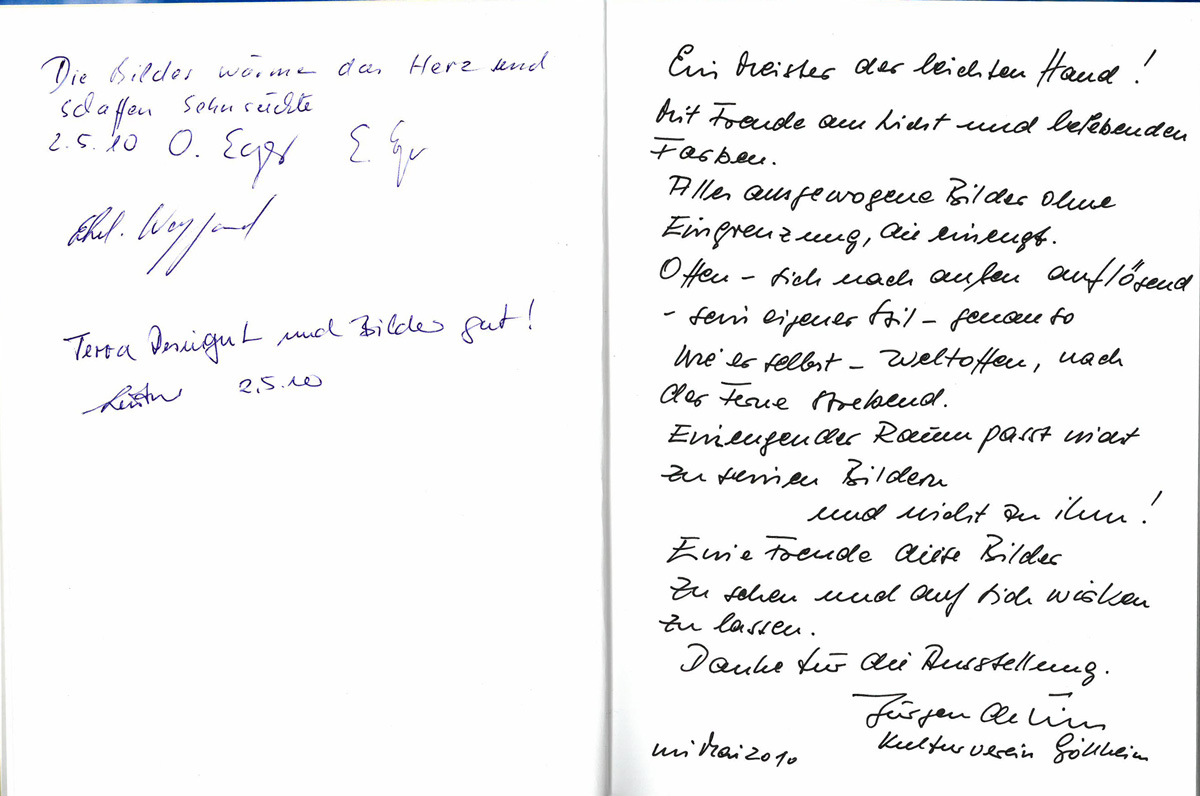 Die Bilder wärme das Herz und
schaffen Sehnsüchte
2.5.10 O. Eger E. Eger
Terra Designt und Bilder gut!
2.5.10
Ein Meister der leichten Hand!
Mit Freude am Licht und belebenden
Farben.
Alles ausgewogene Bilder ohne
Eingrenzung, die einengt.
Offen – sich nach außen auflösend
– sein eigener Stil – genau so
wie er selbst – Weltoffen, nach
der Ferne strebend.
Einengender Raum passt nicht
zu seinen Bildern
und nicht zu ihm!
Eine Freude diese Bilder
zu sehen und auf sich wirken
zu lassen.
Danke für die Ausstellung.
Jürgen
Kulturverein Göllheim
im Mai 2010